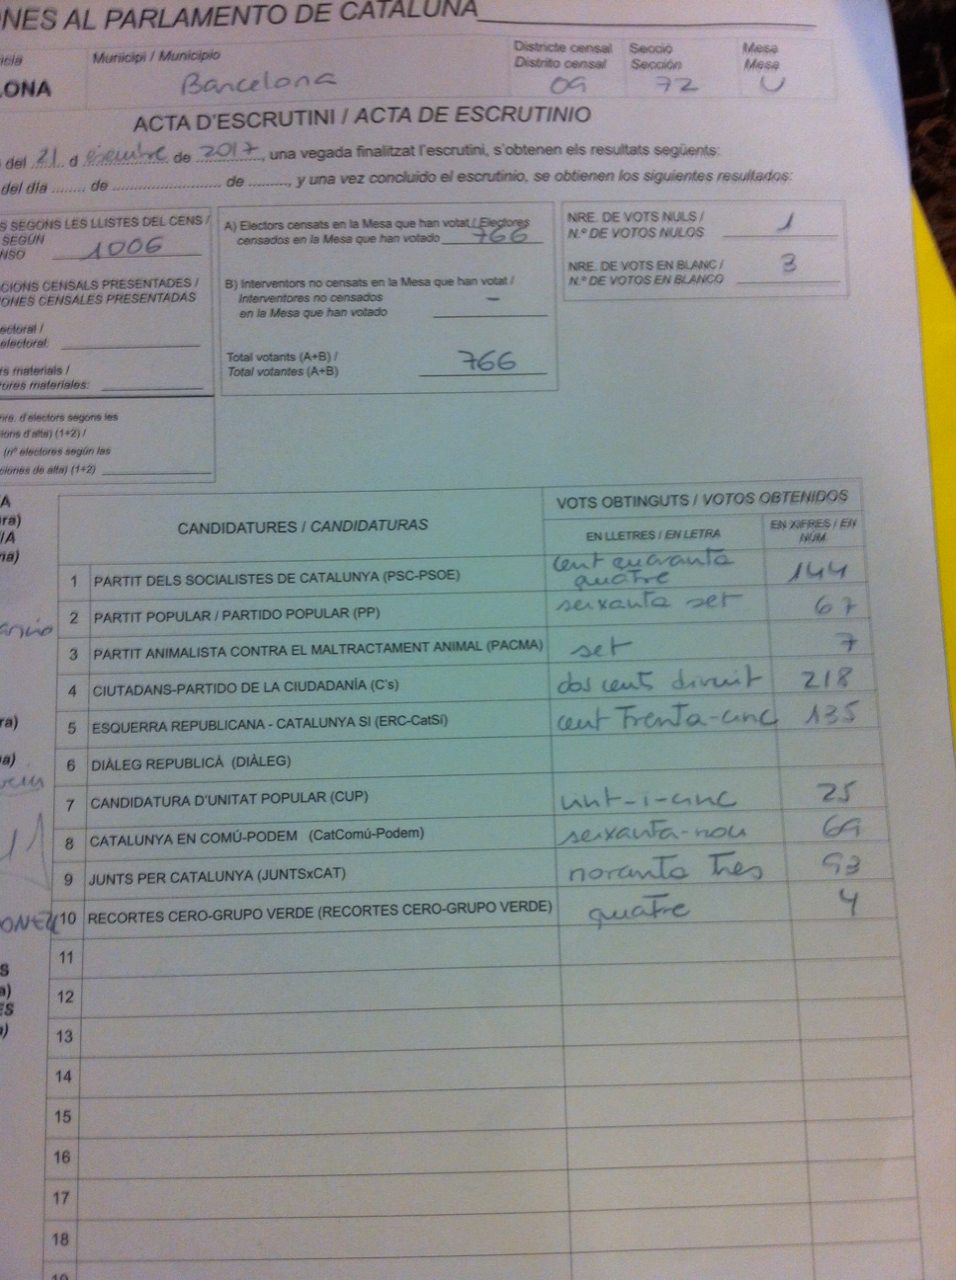 NES AL PARLAMENTO DE CATALUÑA
ncia
Municipi / Municipio
Districte censal
Distrito censal
Secció
Sección
Mesa
Mesa
LONA
Barcelona
09
72
U
ACTA D'ESCRUTINI / ACTA DE ESCRUTINIO
del 21 d de 2017, una vegada finalitzat l'escrutini, s'obtenen els resultats següents:
del día ........ de ............................ de ........., y una vez concluido el escrutinio, se obtienen los siguientes resultados:
S SEGONS LES LLISTES DEL CENS /
SEGÚN
NSO 1006
CIONS CENSALS PRESENTADES /
ONES CENSALES PRESENTADAS
ectoral /
electoral:
rs materials /
rores materiales:
nre. d'electors segons les
ions d'alta) (1+2) /
(nº electores según las
ciones de alta) (1+2)
A) Electors censats en la Mesa que han votat / Electores
censados en la Mesa que han votado 766
B) Interventors no censats en la Mesa que han votat /
Interventores no censados
en la Mesa que han votado –
Total votants (A+B) /
Total votantes (A+B) 766
NRE. DE VOTS NULS /
N.º DE VOTOS NULOS 1
NRE. DE VOTS EN BLANC /
N.º DE VOTOS EN BLANCO 3
CANDIDATURES / CANDIDATURAS
VOTS OBTINGUTS / VOTOS OBTENIDOS
EN LLETRES / EN LETRA
EN XIFRES / EN NÚM.
1 PARTIT DELS SOCIALISTES DE CATALUNYA (PSC-PSOE) cent cuaranta quatre 144
2 PARTIT POPULAR / PARTIDO POPULAR (PP) seixanta set 67
3 PARTIT ANIMALISTA CONTRA EL MALTRACTAMENT ANIMAL (PACMA) set 7
4 CIUTADANS-PARTIDO DE LA CIUDADANÍA (C's) dos cents divuit 218
5 ESQUERRA REPUBLICANA - CATALUNYA SÍ (ERC-CatSí) cent Trenta-cinc 135
6 DIÀLEG REPUBLICÀ (DIÀLEG)
7 CANDIDATURA D'UNITAT POPULAR (CUP) vint-i-cinc 25
8 CATALUNYA EN COMÚ-PODEM (CatComú-Podem) seixanta-nou 69
9 JUNTS PER CATALUNYA (JUNTSxCAT) noranta tres 93
10 RECORTES CERO-GRUPO VERDE (RECORTES CERO-GRUPO VERDE) quatre 4
11
12
13
14
15
16
17
18
19